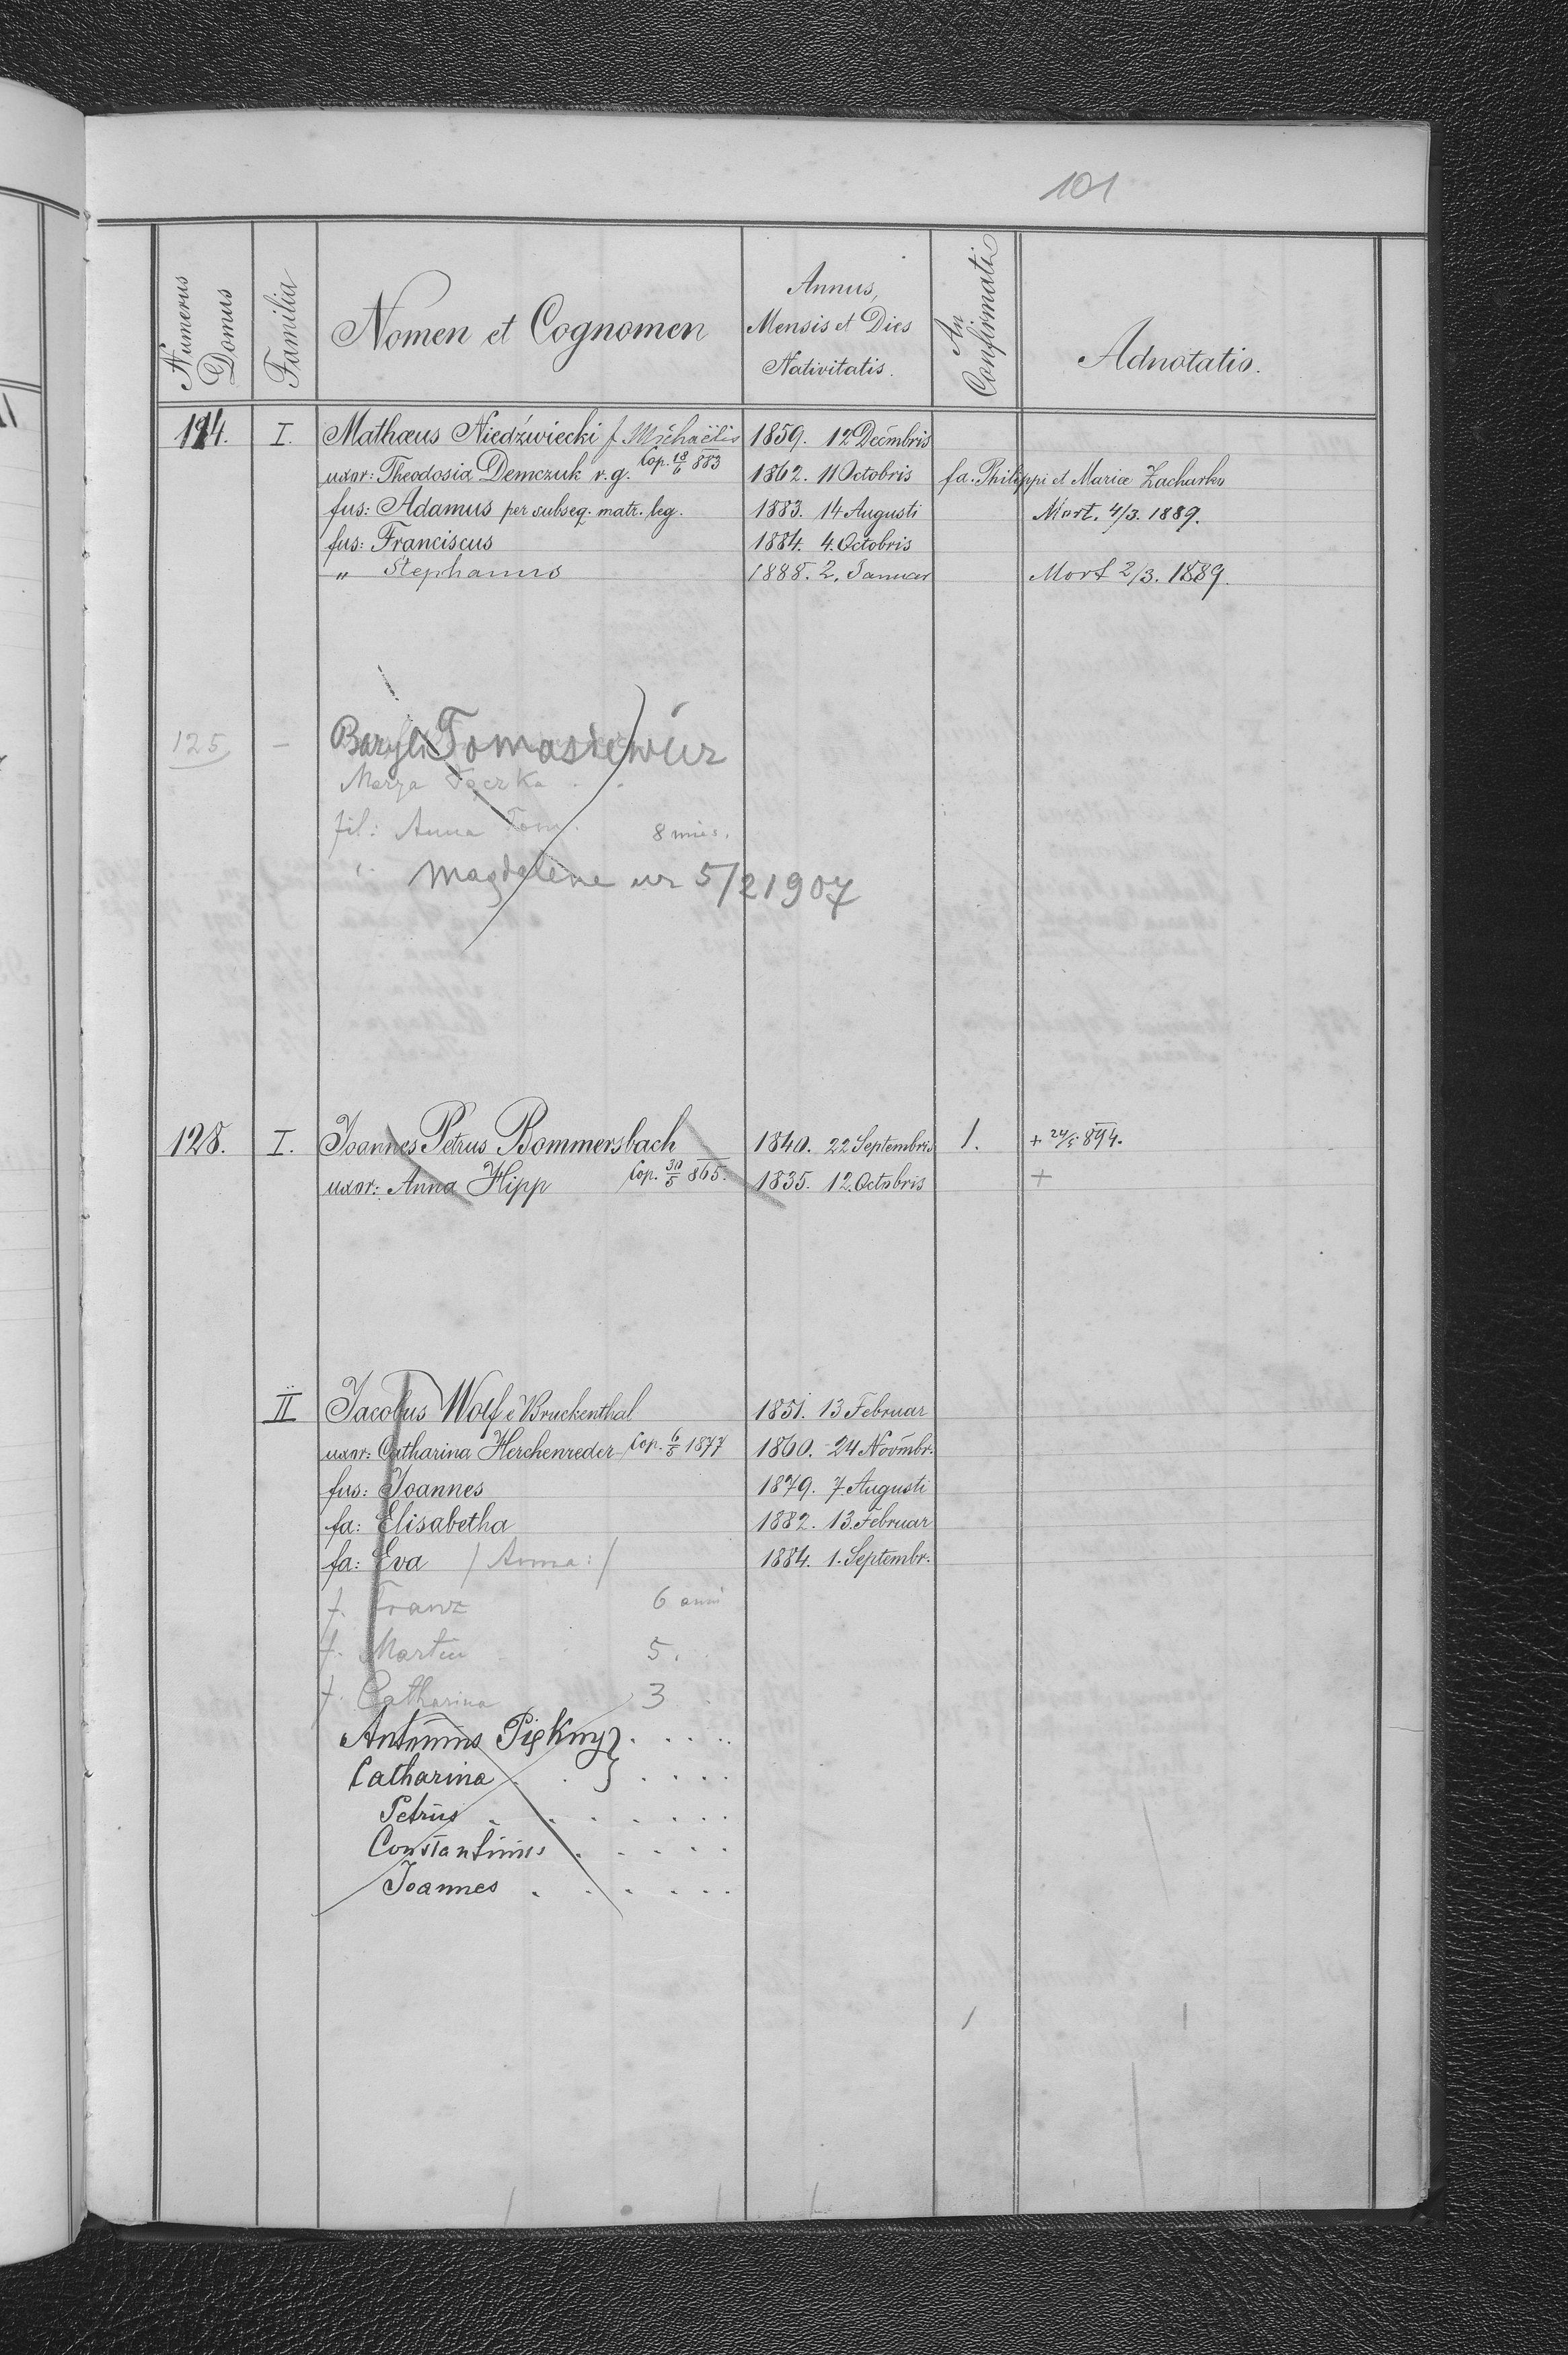 101
Numerus Domus
Familia
Nomen et Cognomen
Annus, Mensis et Dies Nativitatis.
An. Confirmatio
Adnotatio.
124. I. Mathæus Niedźwiecki f. Michaëlis 1859. 12 Decmbris
uxor: Theodosia Demczuk r. g. Cop. 18/6 883 1862. 11 Octobris fa. Philippi et Mariæ Zacharko
fus: Adamus per subseq. matr. leg. 1883. 14 Augusti Mort. 4/3. 1889.
fus: Franciscus 1884. 4. Octobris
" Stephanus 1888. 2. Januar Mort 2/3. 1889.
125 – Baryli Tomasiewicz
Marya Tączka
fil: Anna Tom. 8 mies.
" Magdalene ur 5/2 1907
128. I. Joannes Petrus Bommersbach 1840. 22 Septembris 1. + 24/5 894.
uxor: Anna Hipp Cop. 30/5 865. 1835. 12. Octobris +
II Jacobus Wolf e Bruckenthal 1851. 13 Februar
uxor: Catharina Herchenreder Cop. 6/5 1877 1860. 24 Novmbr.
fus: Joannes 1879. 7. Augusti
fa: Elisabetha 1882. 13. Februar
fa: Eva /Anna:/ 1884. 1. Septembr.
f. Franz 6 anni
f. Martin 5.
f. Catharina 3
Antonius Piękny } . . . . .
Catharina . . } . . . .
Petrus . . . . . . .
Constantinus . . . . .
Joannes . . . . . .